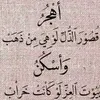 أَهْجُرُ
قُصُورَ الذُّلِّ لَوْ هِيَ مِنْ ذَهَبٍ
وَأَسْكُنُ
بُيُوتَ الْعِزِّ لَوْ كَانَتْ خَرَابَ